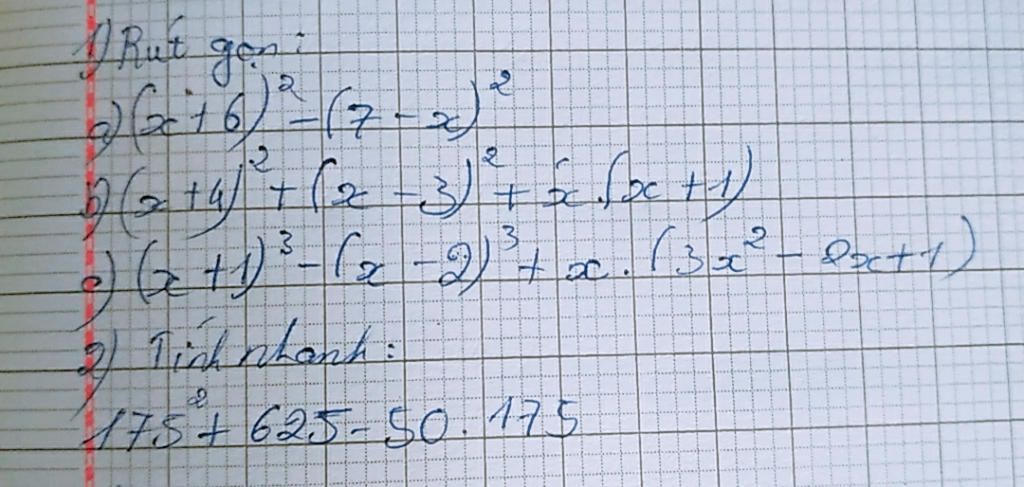 1) Rút gọn:
a) (x + 6)² - (7 - x)²
b) (x + 4)² + (x - 3)² + x.(x + 1)
c) (x + 1)³ - (x - 2)³ + x.(3x² - 2x + 1)
2) Tính nhanh:
175² + 625 - 50.175